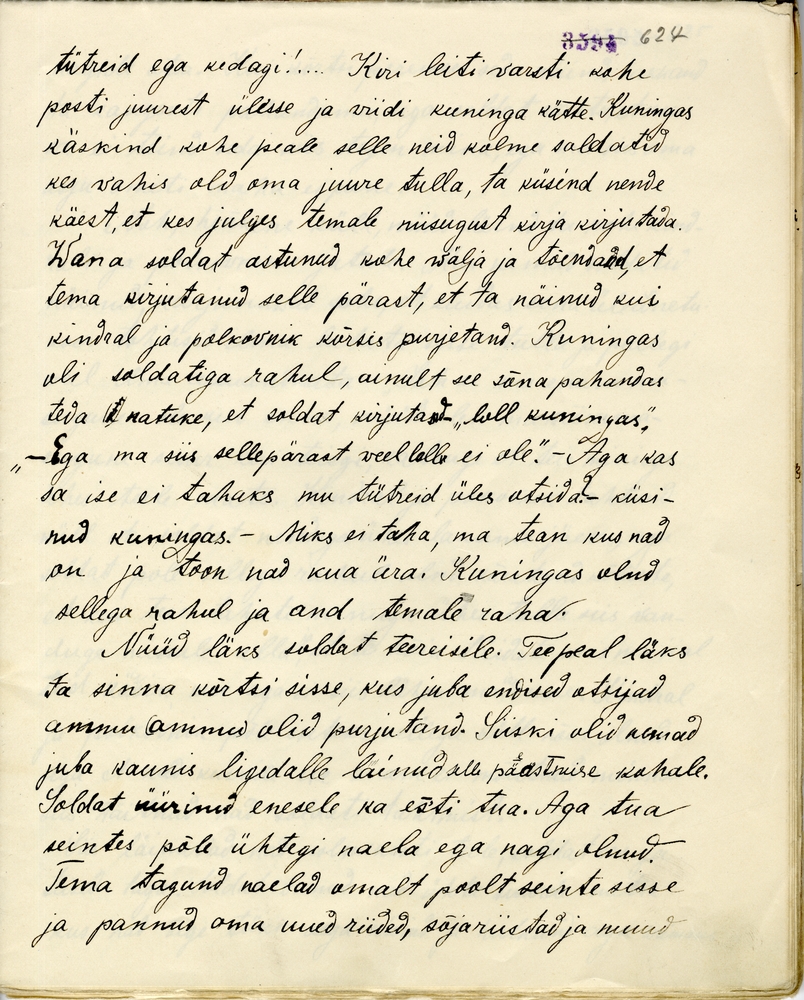 3594 624
tütreid ega kedagi!.... Kiri leiti varsti kohe
posti juurest ülesse ja viidi kuninga kätte. Kuningas
käskind kohe peale selle neid kolme soldatid
kes vahis old oma juure tulla, ta küsind nende
käest, et kes julges temale niisugust kirja kirjutada.
Wana soldat astunud kohe wälja ja tõendand, et
tema kirjutanud selle pärast, et ta näinud kui
kindral ja polkovnik kõrsis purjetand. Kuningas
oli soldatiga rahul, ainult see sõna pahandas
teda natuke, et soldat kirjutand „loll kuningas”.
„— Ega ma siis sellepärast veel loll ei ole”. — Aga kas
sa ise ei tahaks mu tütreid üles otsida? — küsi-
nud kuningas. — Miks ei taha, ma tean kus nad
on ja toon nad kua ära. Kuningas olnd
sellega rahul ja and temale raha.
Nüüd läks soldat teereisile. Teepeal läks
ta sinna kõrtsi sisse, kus juba endised otsijad
ammu ammu olid purjutand. Siiski olid nemad
juba kaunis ligedalle läinud selle päästmise kohale.
Soldat üürinud enesele ka esti tua. Aga tua
seintes põle ühtegi naela ega nagi olnud.
Tema tagund naelad omalt poolt seinte sisse
ja pannud oma uued riided, sõjariistad ja muud